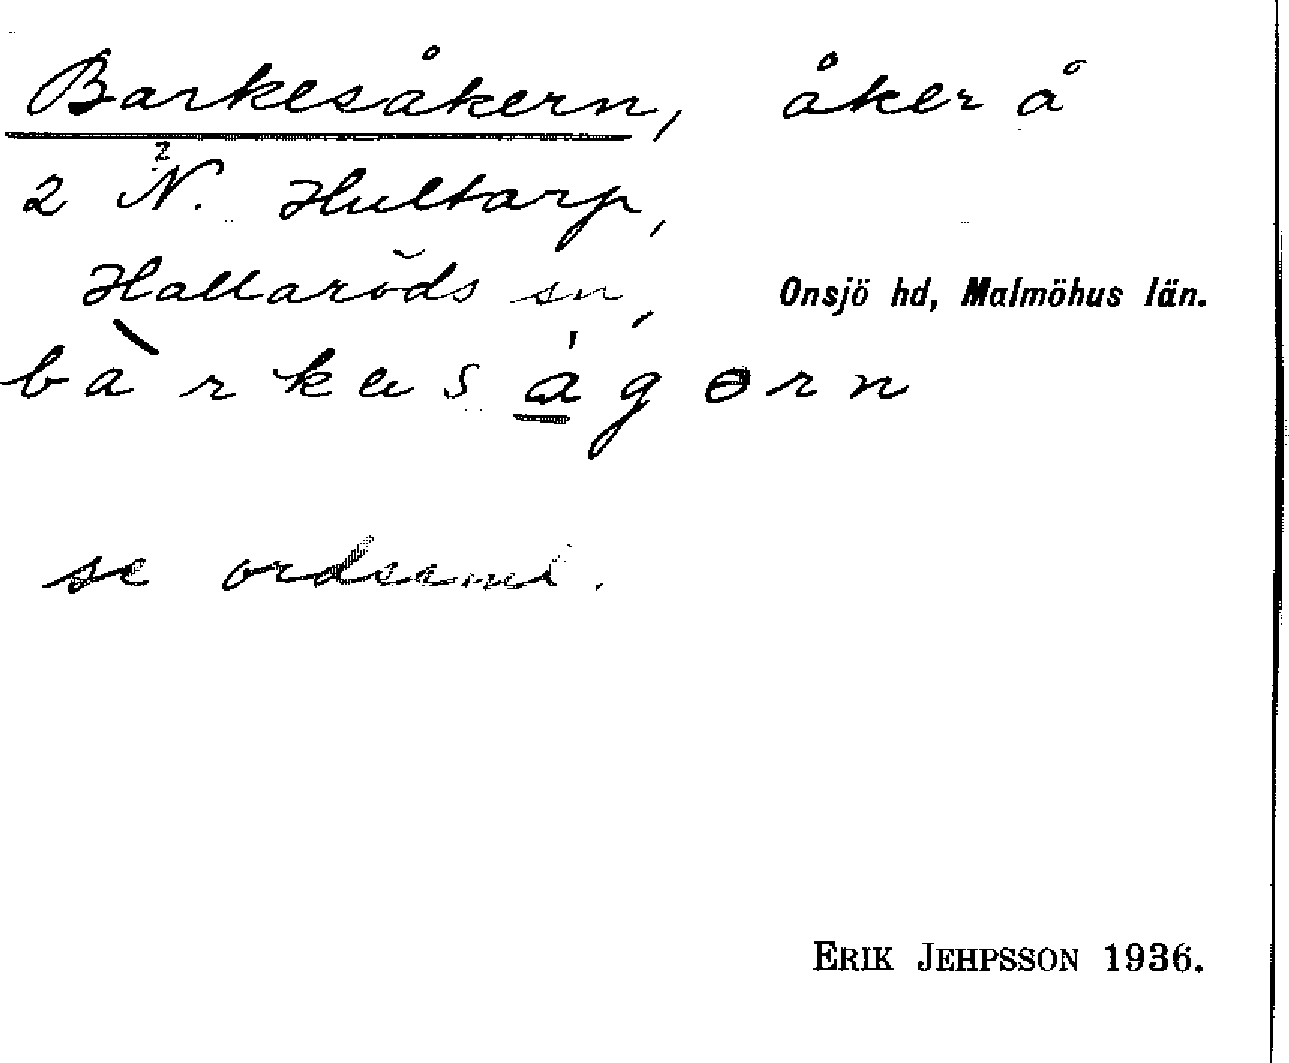 Barkesåkern, åker å
2 N.² Hultarp,
Hallaröds sn, Onsjö hd, Malmöhus län.
bàrkaságərn
se ordsaml.
ERIK JEHPSSON 1936.